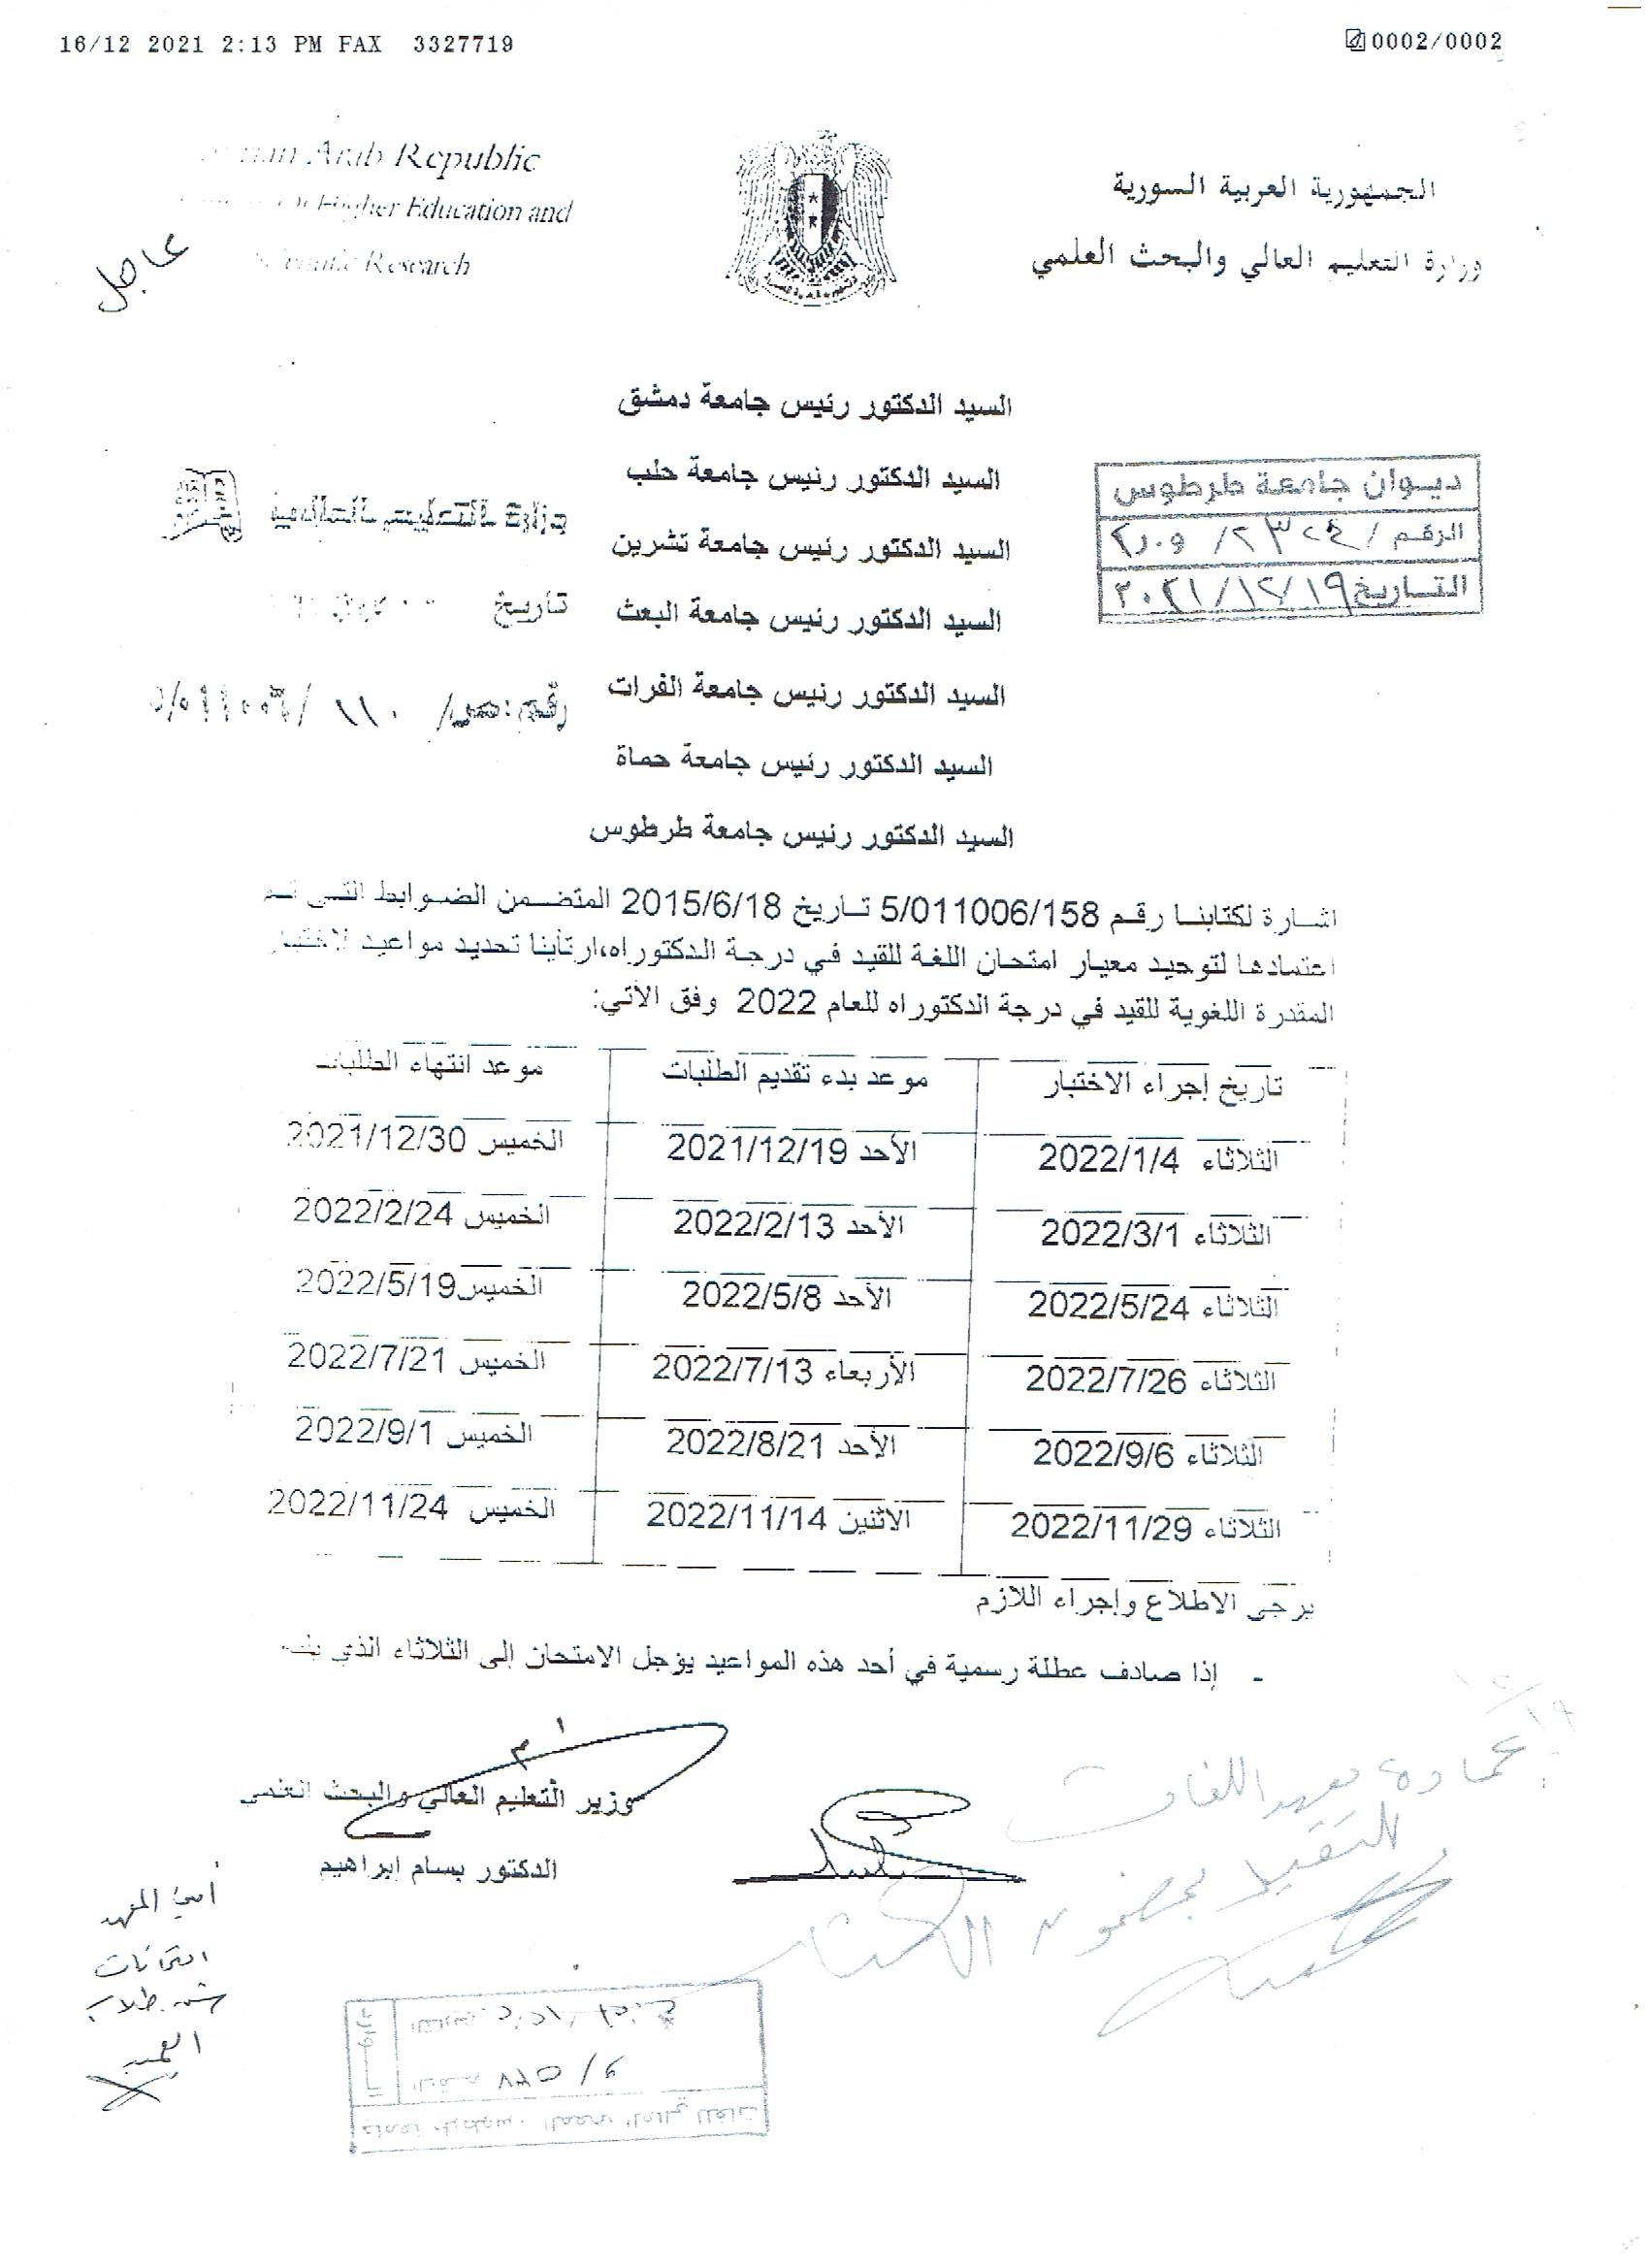 16/12 2021 2:13 PM FAX 3327719
0002/0002
Arab Republic
Higher Education and
Research
الجمهورية العربية السورية
وزارة التعليم العالي والبحث العلمي
عاجل
السيد الدكتور رئيس جامعة دمشق
السيد الدكتور رئيس جامعة حلب
السيد الدكتور رئيس جامعة تشرين
السيد الدكتور رئيس جامعة البعث
السيد الدكتور رئيس جامعة الفرات
السيد الدكتور رئيس جامعة حماة
السيد الدكتور رئيس جامعة طرطوس
ديوان جامعة طرطوس
الرقم /
التاريخ ٢٠٢١/١٢/١٩
تاريخ
رقم: ص/ ١١٠ /
اشارة لكتابنا رقم 5/011006/158 تاريخ 2015/6/18 المتضمن الضوابط التي تم
اعتمادها لتوحيد معيار امتحان اللغة للقيد في درجة الدكتوراه،ارتأينا تحديد مواعيد لاختبار
المقدرة اللغوية للقيد في درجة الدكتوراه للعام 2022 وفق الآتي:
تاريخ إجراء الاختبار موعد بدء تقديم الطلبات موعد انتهاء الطلبات
الثلاثاء 2022/1/4 الأحد 2021/12/19 الخميس 2021/12/30
الثلاثاء 2022/3/1 الأحد 2022/2/13 الخميس 2022/2/24
الثلاثاء 2022/5/24 الأحد 2022/5/8 الخميس 2022/5/19
الثلاثاء 2022/7/26 الأربعاء 2022/7/13 الخميس 2022/7/21
الثلاثاء 2022/9/6 الأحد 2022/8/21 الخميس 2022/9/1
الثلاثاء 2022/11/29 الاثنين 2022/11/14 الخميس 2022/11/24
يرجى الاطلاع وإجراء اللازم
- إذا صادف عطلة رسمية في أحد هذه المواعيد يؤجل الامتحان إلى الثلاثاء الذي
وزير التعليم العالي والبحث العلمي
الدكتور بسام ابراهيم
عمادة معهد اللغات
للتقيد بمضمون الكتاب
أمين المعهد
امتحانات
العميد